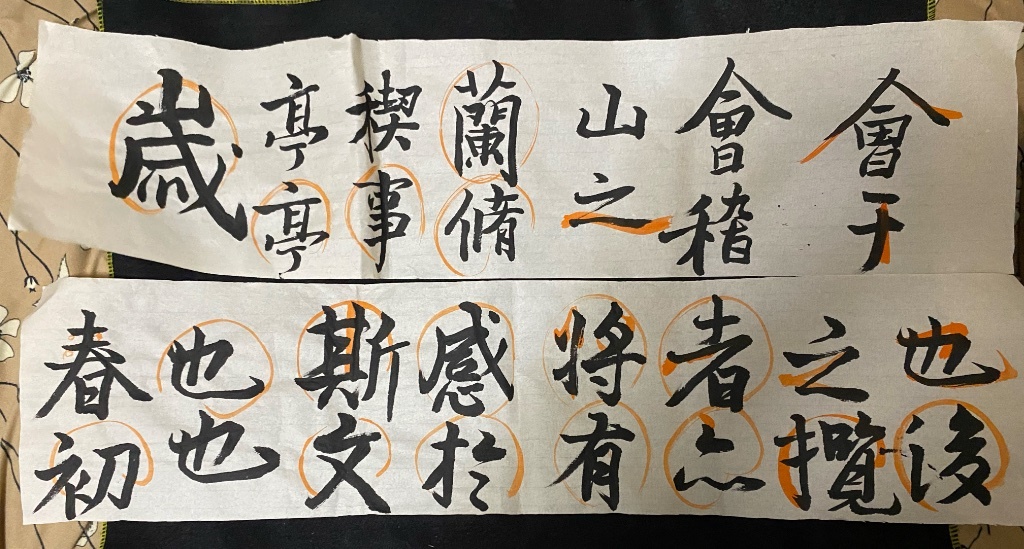 會于
會稽
山之
蘭脩
稧事
亭亭
嵗
也後
之攬
者亦
将有
感於
斯文
也也
春初